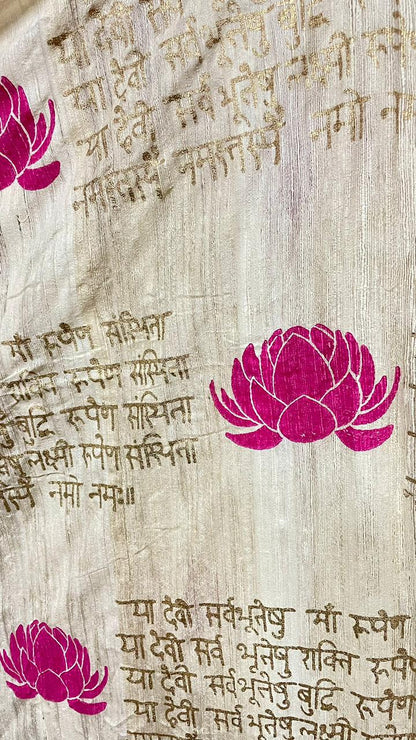 या देवी सर्व भूतेषु
या देवी सर्व भूतेषु
या देवी सर्व भूतेषु लक्ष्मी रूपे
नमस्तस्यै नमस्तस्यै नमो
माँ रूपेण संस्थिता
शक्ति रूपेण संस्थिता
बुद्धि रूपेण संस्थिता
लक्ष्मी रूपेण संस्थिता
नमो नमः॥
या देवी सर्वभूतेषु माँ रूपेण
या देवी सर्व भूतेषु शक्ति रूपे
या देवी सर्वभूतेषु बुद्धि रूपे
या देवी सर्व भूतेषु लक्ष्मी